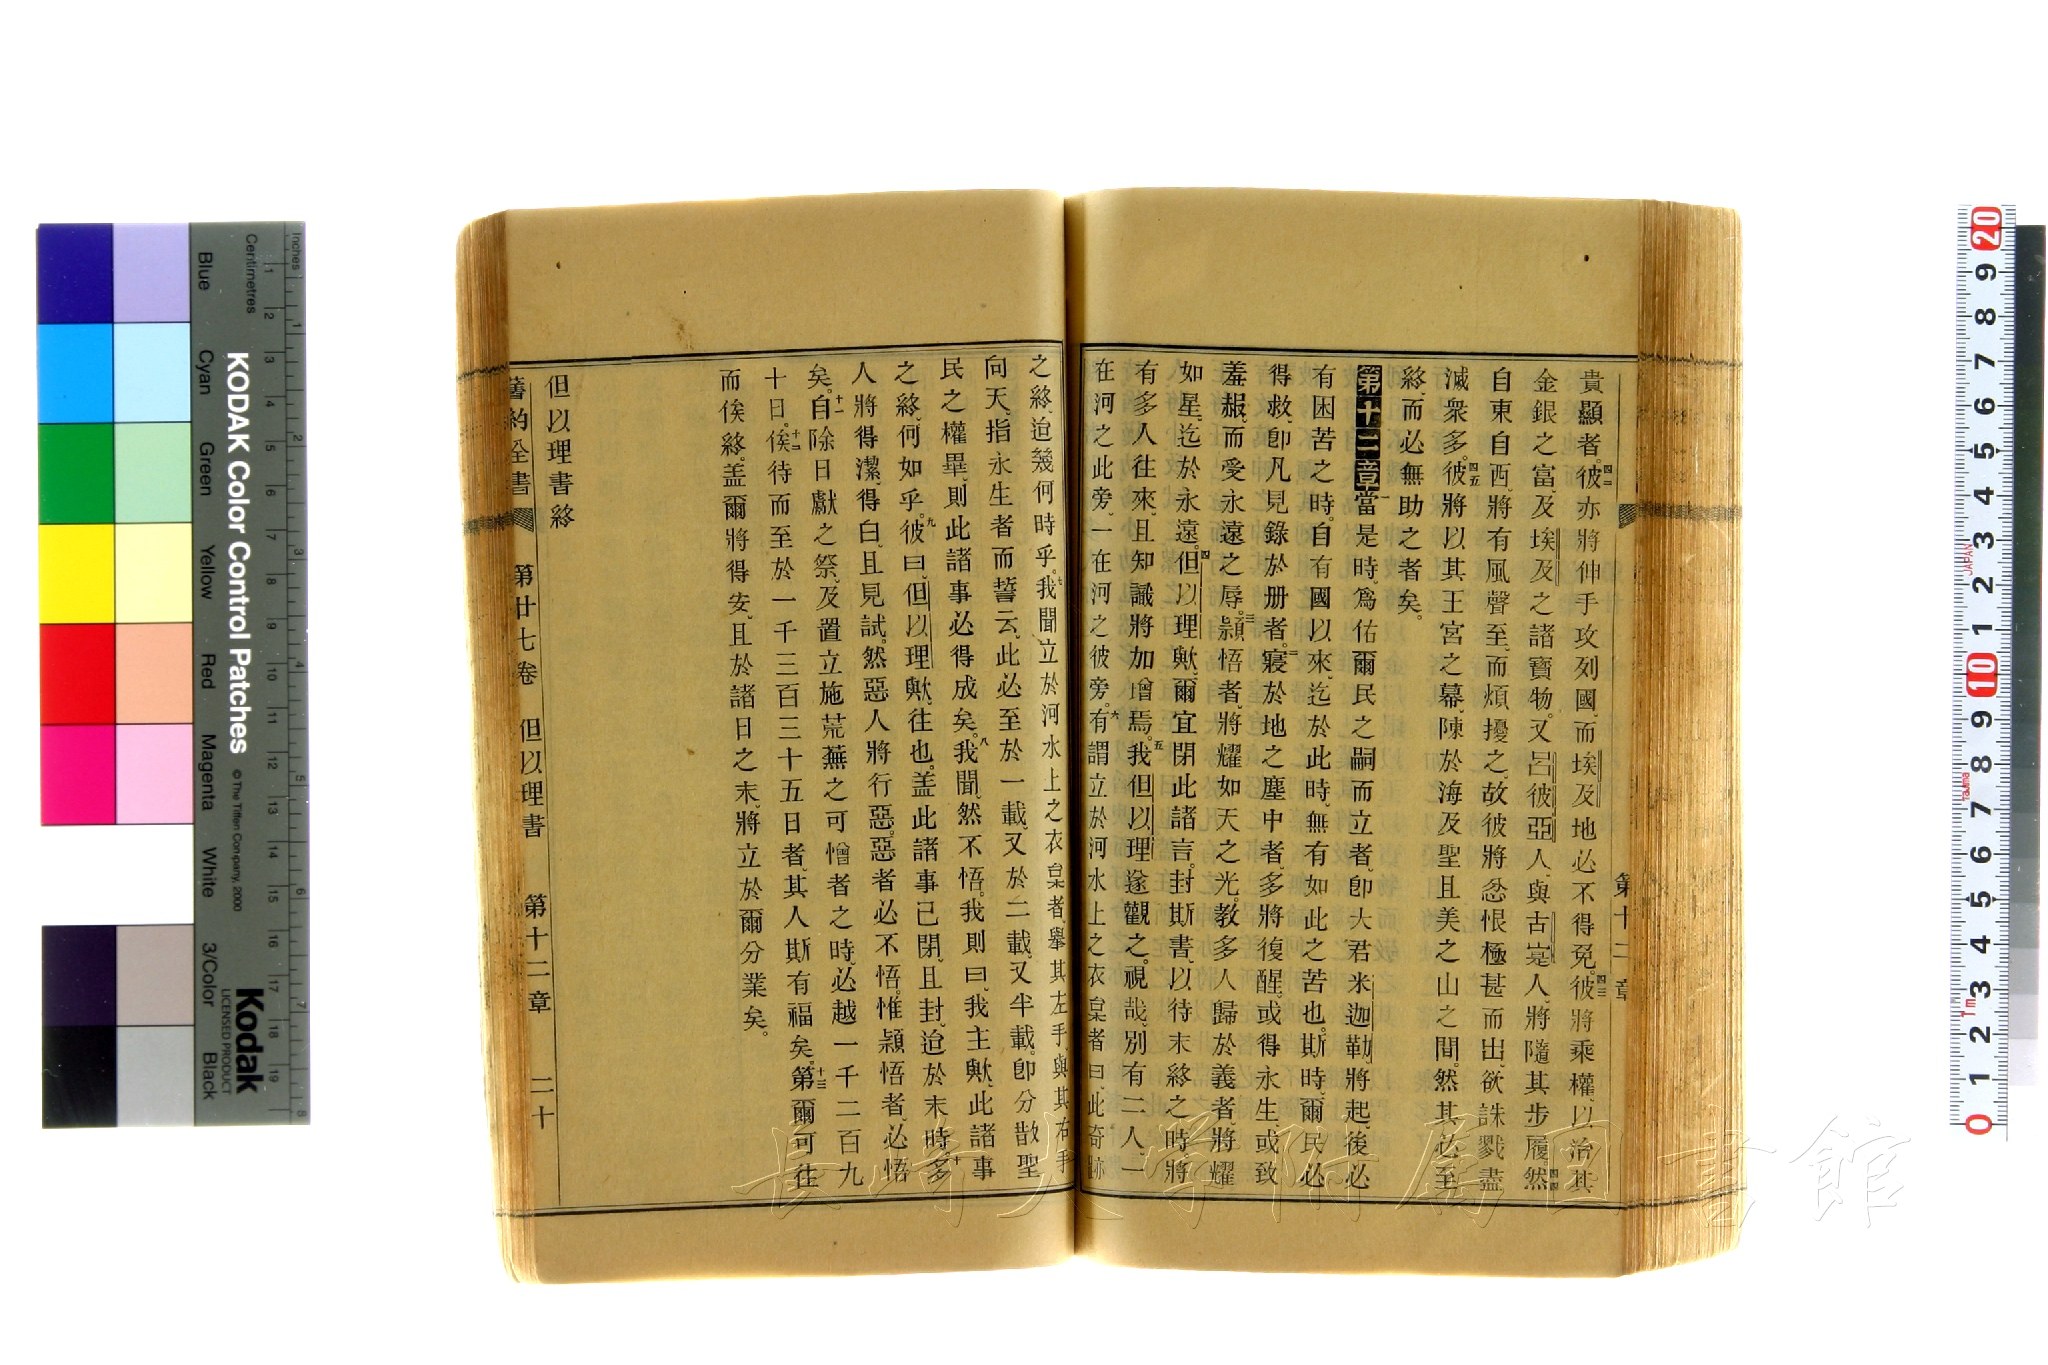 貴顯者。四二彼亦將伸手攻列國、而埃及地必不得免。四三彼將乘權、以治其
金銀之富、及埃及之諸寶物。又呂彼亞人、與古寔人、將隨其步履。四四然
自東自西、將有風聲至、而煩擾之、故彼將忿恨極甚而出、欲誅戮盡
滅衆多。四五彼將以其王宮之幕、陳於海及聖且美之山之間。然其必至
終、而必無助之者矣。
第十二章一當是時、爲佑爾民之嗣而立者、卽大君米迦勒、將起、後必
有困苦之時。自有國以來、迄於此時、無有如此之苦也。斯時、爾民必
得救、卽凡見錄於册者。二寢於地之塵中者、多將復醒。或得永生、或致
羞赧、而受永遠之辱。三穎悟者、將耀如天之光。教多人歸於義者、將耀
如星、迄於永遠。四但以理歟、爾宜閉此諸言。封斯書、以待末終之時、將
有多人往來、且知識將加增焉。五我但以理遂觀之。視哉、別有二人、一
在河之此旁、一在河之彼旁。六有謂立於河水上之衣枲者曰、此奇跡
之終、迨幾何時乎。七我聞立於河水上之衣枲者、擧其左手、與其右手
向天。指永生者而誓云、此必至於一載、又於二載、又半載。卽分散聖
民之權畢、則此諸事必得成矣。八我聞、然不悟。我則曰、我主歟、此諸事
之終、何如乎。九彼曰、但以理歟、往也。盖此諸事已閉、且封、迨於末時。十多
人將得潔、得白、且見試。然惡人將行惡。惡者必不悟。惟穎悟者、必悟
矣。十一自除日獻之祭、及置立施荒蕪之可憎者之時、必越一千二百九
十日。十二俟待而至於一千三百三十五日者、其人斯有福矣。十三第爾可往
而俟終。盖爾將得安、且於諸日之末、將立於爾分業矣。
但以理書終
舊約全書 第廿七卷 但以理書 第十二章 二十
第十二章
長崎大学附属図書館
KODAK Color Control Patches
© The Tiffen Company, 2000
Kodak
LICENSED PRODUCT
Blue Cyan Green Yellow Red Magenta White 3/Color Black
Inches 1 2 3 4 5 6 7 8
Centimetres 1 2 3 4 5 6 7 8 9 10 11 12 13 14 15 16 17 18 19
20 9 8 7 6 5 4 3 2 1 10 9 8 7 6 5 4 3 2 1 0
JAPAN
1m